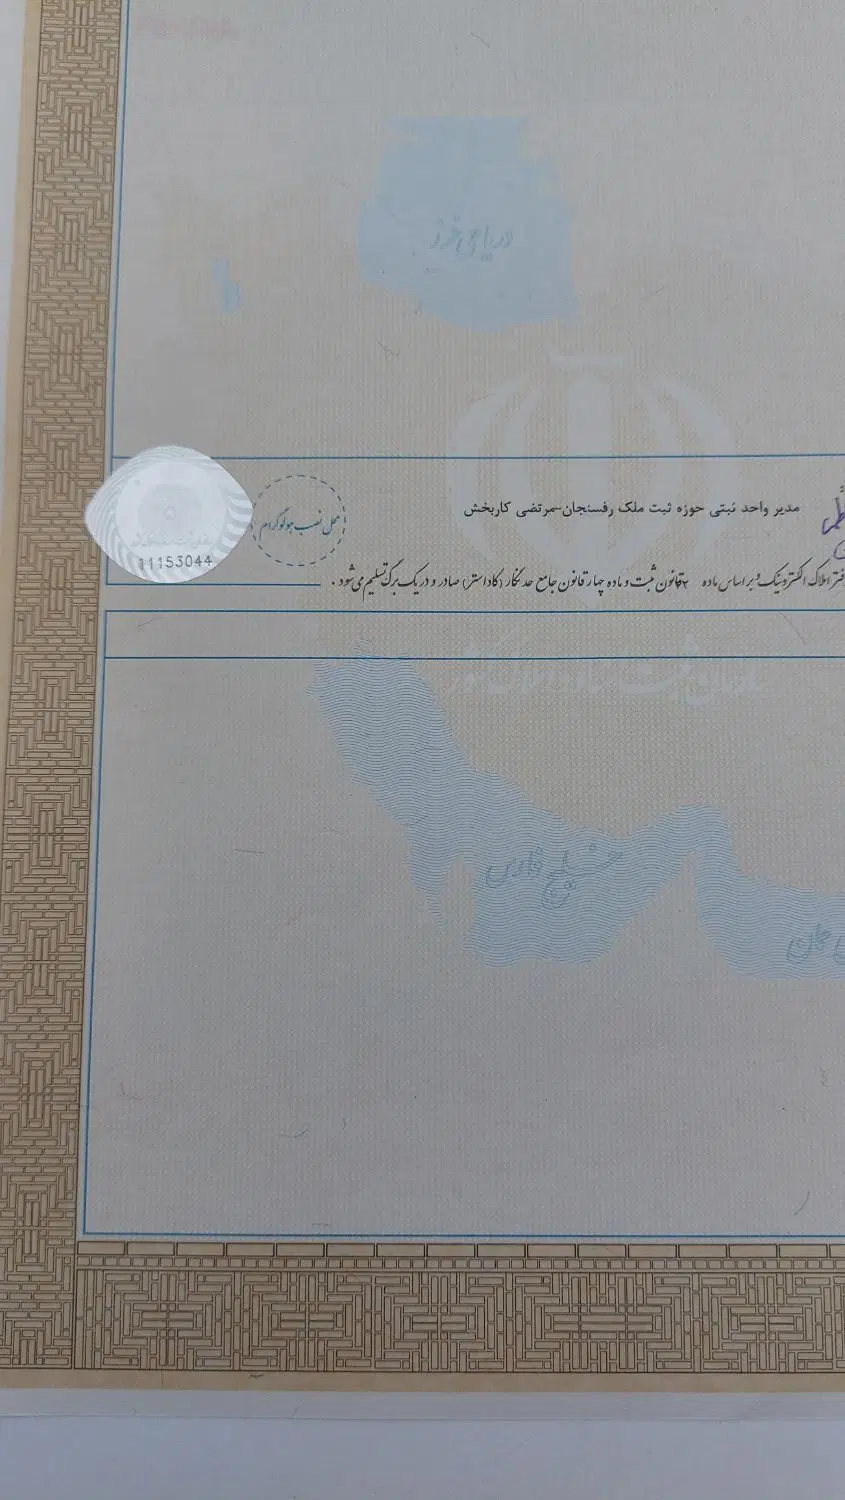 دریای خزر
مدیر واحد ثبتی حوزه ثبت ملک رفسنجان-مرتضی کاربخش
محل نصب هولوگرام
11153044
املاک الکترونیک و بر اساس ماده ۲۲ قانون ثبت و ماده چهار قانون جامع حدنگار (کاداستر) صادر و در یک برگ تسلیم می شود .
خلیج فارس
عمان